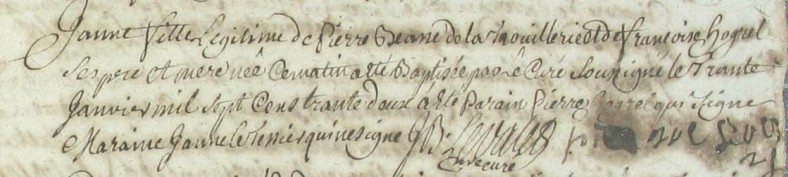 Janne fille Legitime de Pierre Beane de la trouillerie et de françoise hogrel
ses pere et mere neê Ce matin a ete Baptisée par le Curé Sousigné le Trante
Janvier mil sept Cens trante deux a ete Parain Pierre hogrel qui signe
Maraine Janne le tenier qui ne signe
curé